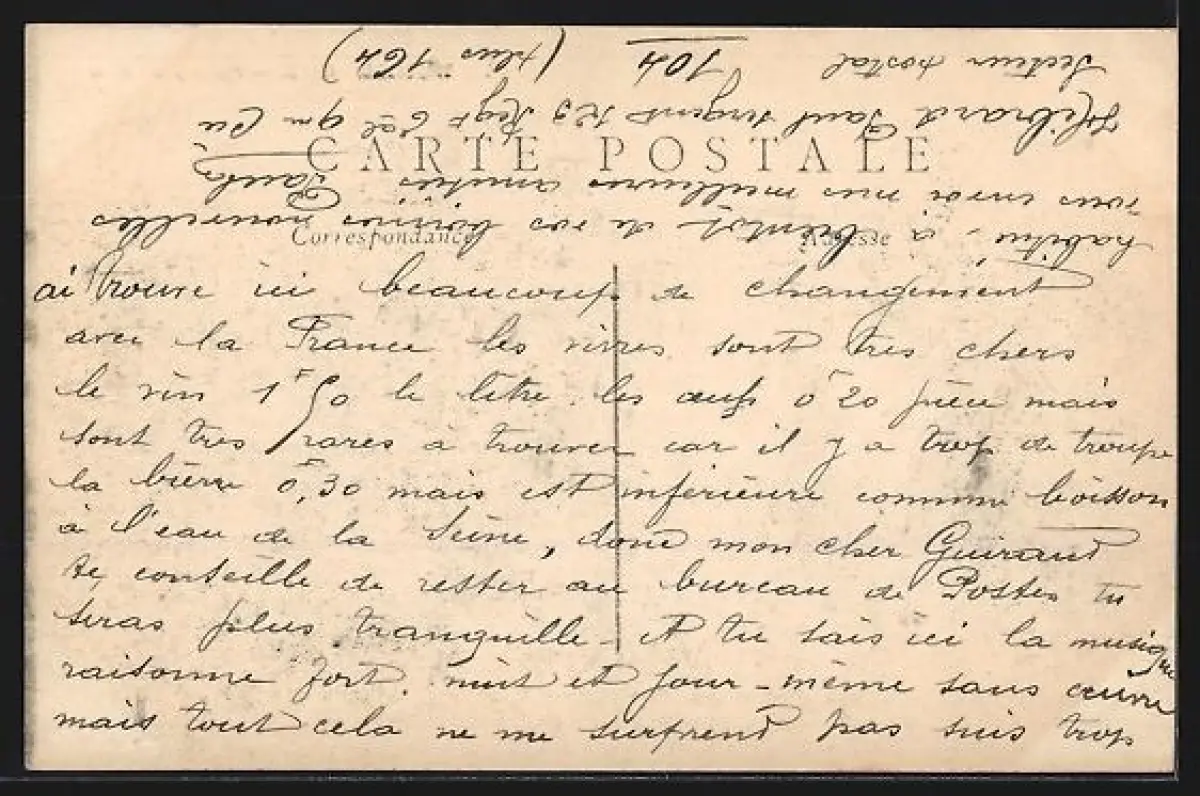 CARTE POSTALE
Correspondance
Adresse
ai trouvé ici beaucoup de changement
avec la France les vivres sont très chers
le vin 1f50 le litre. les œufs 0f20 pièce mais
sont très rares à trouver car il y a trop de troupe
la bière 0f,30 mais est inférieure comme boisson
à l'eau de la Seine, donc mon cher Guiraud
te conseille de rester au bureau de Postes tu
seras plus tranquille - Et tu sais ici la musique
raisonne fort, nuit et jour - même sans cuivre
mais tout cela ne me surprend pas suis trop
habitué, à bientôt de vos bonnes nouvelles
vous envoi mes meilleures amitiés Paul
Hébrard Paul sergent 123 Regt 6e 9m Cie
Secteur postal 104 (plus 164)